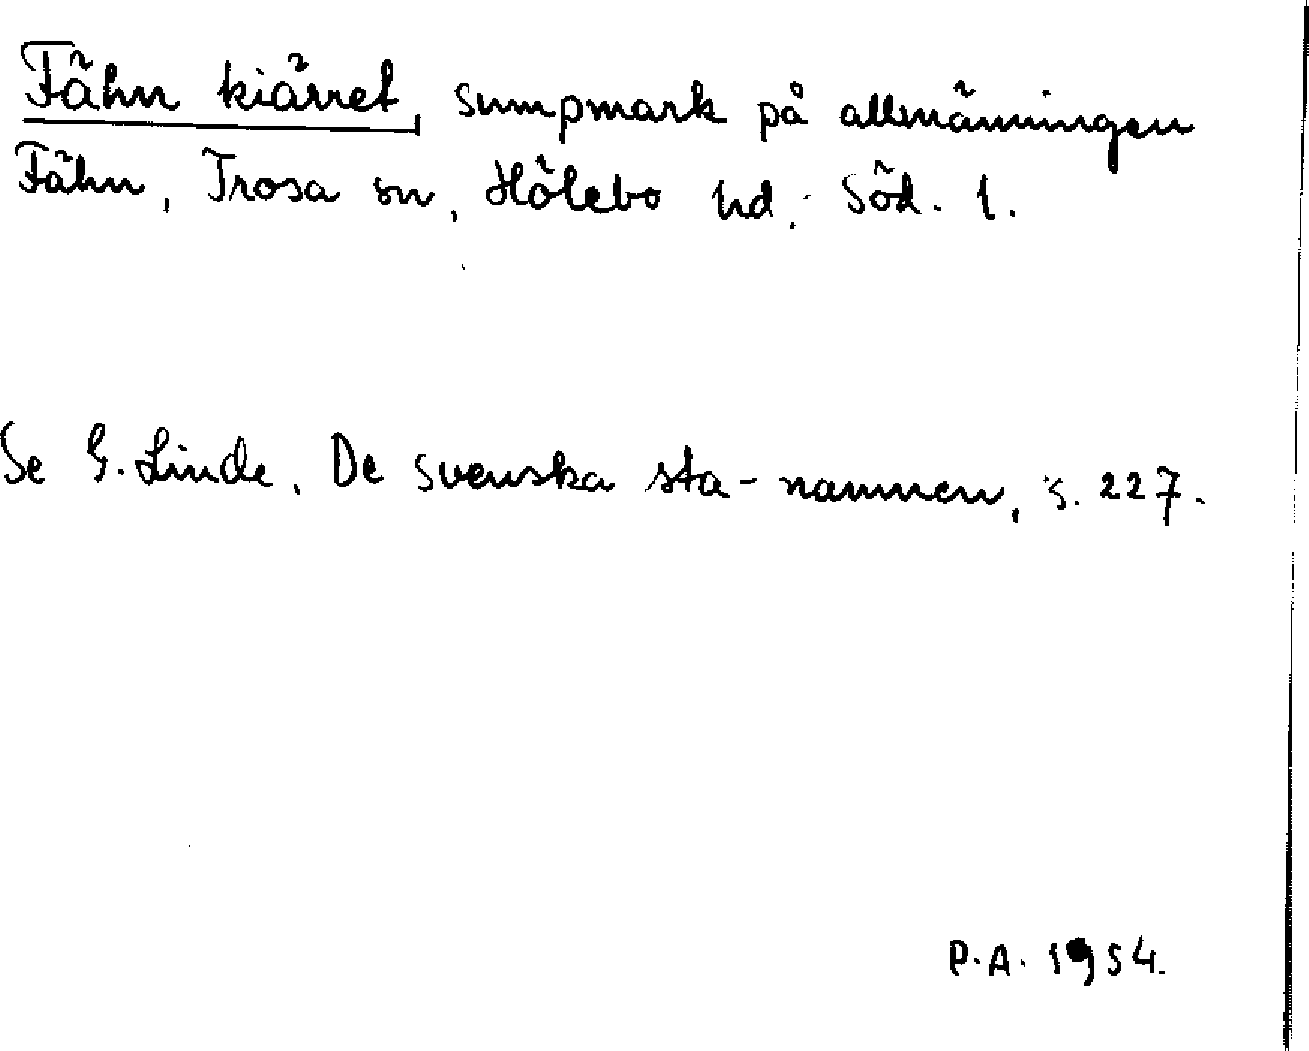 Fähn kiärret, sumpmark på allmänningen
Fähn, Trosa sn, Hölebo hd. Söd. l.
Se G. Linde, De svenska sta-namnen, s. 227.
P.A. 1954.